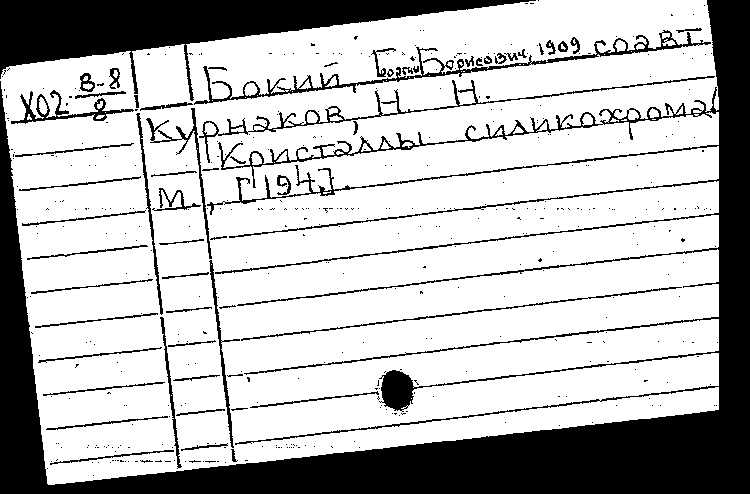 Х02 В-8
8
Бокий, Георгий Борисович, 1909 соавт.
Курнаков, Н. Н.
Кристаллы силикохрома
М., [194,].